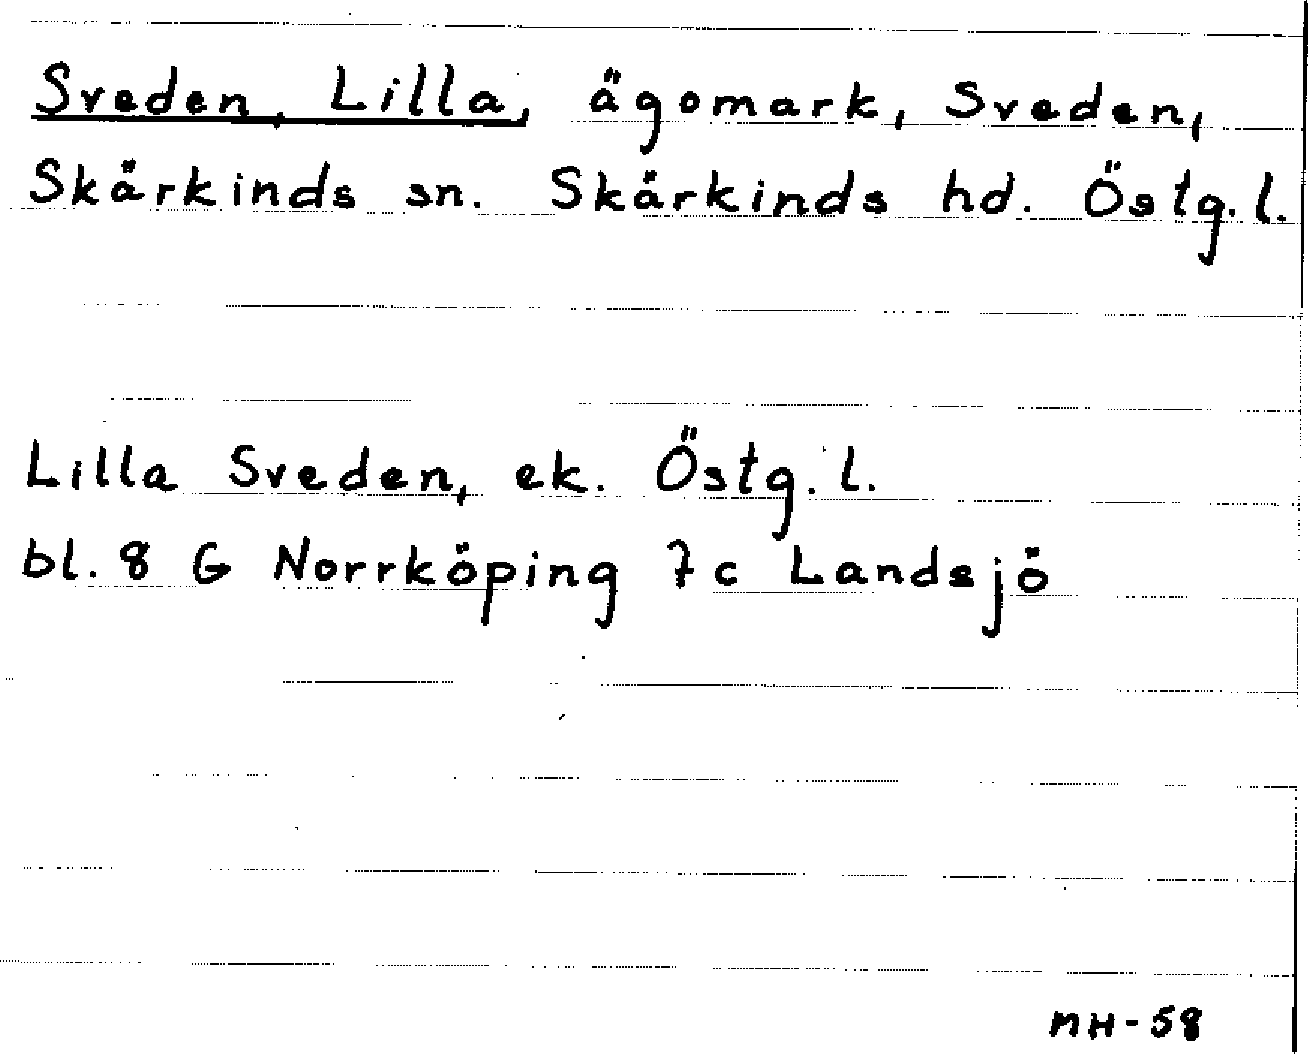 Sveden, Lilla, ägomark, Sveden,
Skärkinds sn. Skärkinds hd. Östg. l.
Lilla Sveden, ek. Östg. l.
bl. 8 G Norrköping 7c Landsjö
MH-58